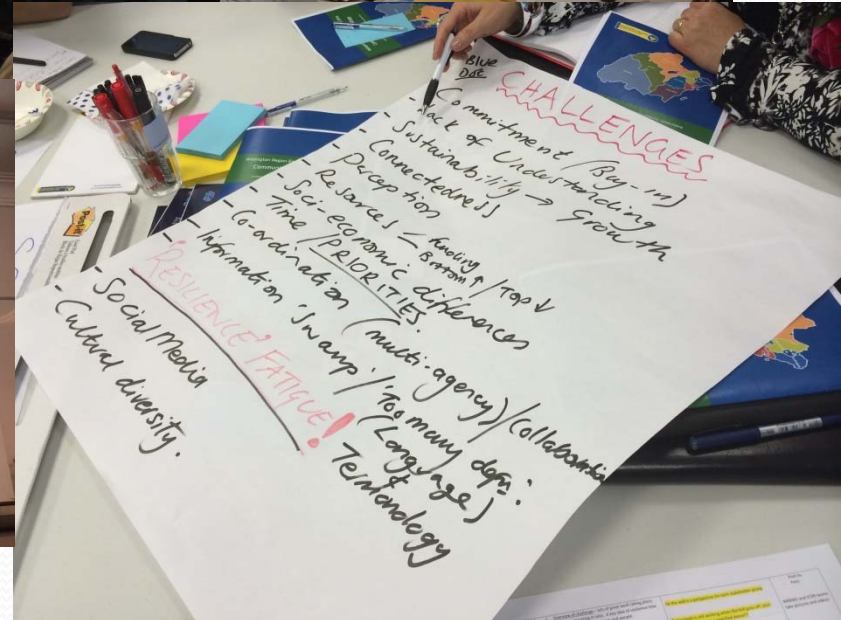 Blue
Dot
CHALLENGES
- Commitment / (Buy-in)
- Lack of Understanding
- Sustainability → Growth
- Connectedness
- Perception
- Resources - funding / Top ↓
Bottom ↑
- Soci-economic differences
- Time / PRIORITIES
- Co-ordination (multi-agency) / Collaboration
- Information 'Swamp' / 'Too many defn:
(Language)
+
Terminology
'RESILIENCE' FATIGUE!
- Social Media
- Cultural diversity.
Post-it